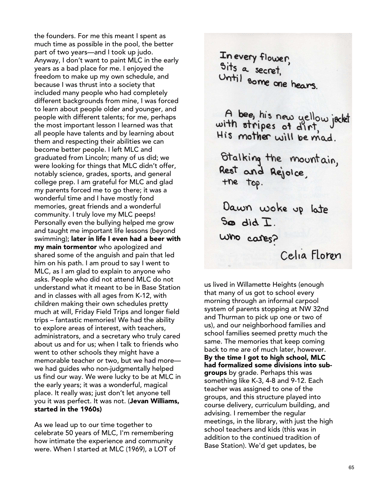 the founders. For me this meant I spent as
much time as possible in the pool, the better
part of two years—and I took up judo.
Anyway, I don't want to paint MLC in the early
years as a bad place for me. I enjoyed the
freedom to make up my own schedule, and
because I was thrust into a society that
included many people who had completely
different backgrounds from mine, I was forced
to learn about people older and younger, and
people with different talents; for me, perhaps
the most important lesson I learned was that
all people have talents and by learning about
them and respecting their abilities we can
become better people. I left MLC and
graduated from Lincoln; many of us did; we
were looking for things that MLC didn't offer,
notably science, grades, sports, and general
college prep. I am grateful for MLC and glad
my parents forced me to go there; it was a
wonderful time and I have mostly fond
memories, great friends and a wonderful
community. I truly love my MLC peeps!
Personally even the bullying helped me grow
and taught me important life lessons (beyond
swimming); later in life I even had a beer with
my main tormentor who apologized and
shared some of the anguish and pain that led
him on his path. I am proud to say I went to
MLC, as I am glad to explain to anyone who
asks. People who did not attend MLC do not
understand what it meant to be in Base Station
and in classes with all ages from K-12, with
children making their own schedules pretty
much at will, Friday Field Trips and longer field
trips – fantastic memories! We had the ability
to explore areas of interest, with teachers,
administrators, and a secretary who truly cared
about us and for us; when I talk to friends who
went to other schools they might have a
memorable teacher or two, but we had more—
we had guides who non-judgmentally helped
us find our way. We were lucky to be at MLC in
the early years; it was a wonderful, magical
place. It really was; just don't let anyone tell
you it was perfect. It was not. (Jevan Williams,
started in the 1960s)

As we lead up to our time together to
celebrate 50 years of MLC, I'm remembering
how intimate the experience and community
were. When I started at MLC (1969), a LOT of

In every flower,
Sits a secret,
Until some one hears.

A bee, his new yellow jacket
with stripes of dirt,
His mother will be mad.

Stalking the mountain,
Rest and Rejoice,
the top.

Dawn woke up late
So did I.
Who cares?

Celia Floren

us lived in Willamette Heights (enough
that many of us got to school every
morning through an informal carpool
system of parents stopping at NW 32nd
and Thurman to pick up one or two of
us), and our neighborhood families and
school families seemed pretty much the
same. The memories that keep coming
back to me are of much later, however.
By the time I got to high school, MLC
had formalized some divisions into sub-
groups by grade. Perhaps this was
something like K-3, 4-8 and 9-12. Each
teacher was assigned to one of the
groups, and this structure played into
course delivery, curriculum building, and
advising. I remember the regular
meetings, in the library, with just the high
school teachers and kids (this was in
addition to the continued tradition of
Base Station). We'd get updates, be

65